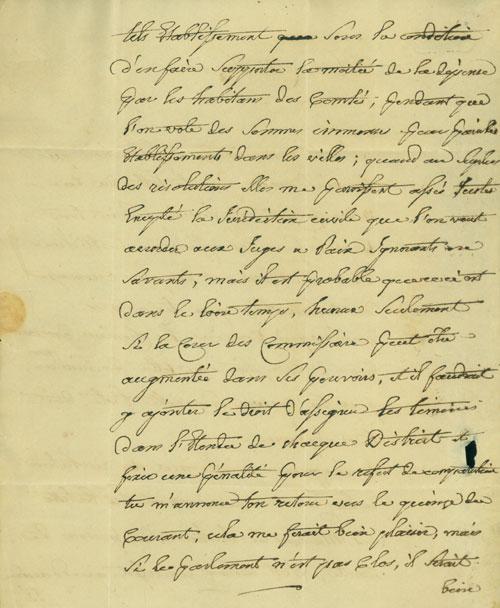 tels Etablissement que sous la condition
d'en faire supporter la moitié de la dépense
par les habitans des Comtés; pendant que
l'on vote des sommes immenses pour pareils
Etablissements dans les villes; quand au
des résolutions elles me paroissent assés
Excepté la Jurisdiction civile que l'on veut
accorder aux Juges a Paix Ignorants ou
Savants, mais il est probable que ceci est
dans le tems, heureux seulement
Si la Cour des Commissaire peut être
augmentée dans ses pouvoirs, et il faudroit
y ajouter le droit d'assigner les témoins
dans l'étendue de chaque District et
fixer une pénalité pour le refus de comparution
tu m'annonce ton retour vers le quinze du
Courant, cela me feroit bien plaisir, mais
Si le Parlement n'est pas clos, il seroit
bien